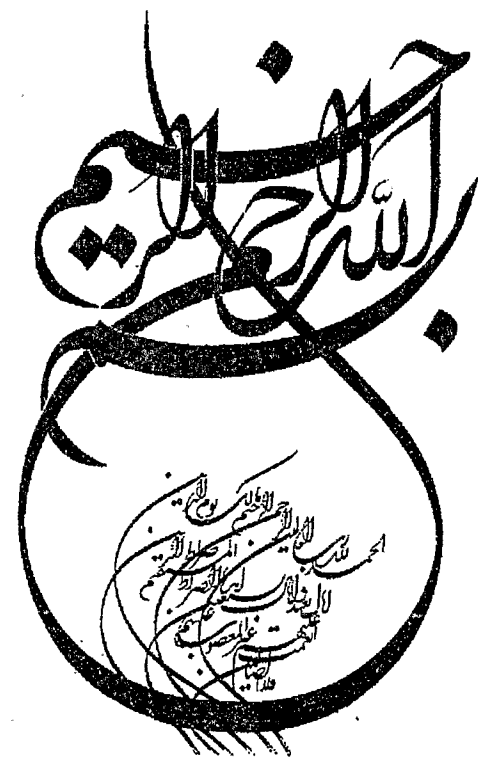 بسم الله الرحمن الرحیم
الحمد لله رب العالمین
الرحمن الرحیم مالک یوم الدین
ایاک نعبد و ایاک نستعین
اهدنا الصراط المستقیم صراط الذین
انعمت علیهم غیر المغضوب علیهم
و لا الضالین